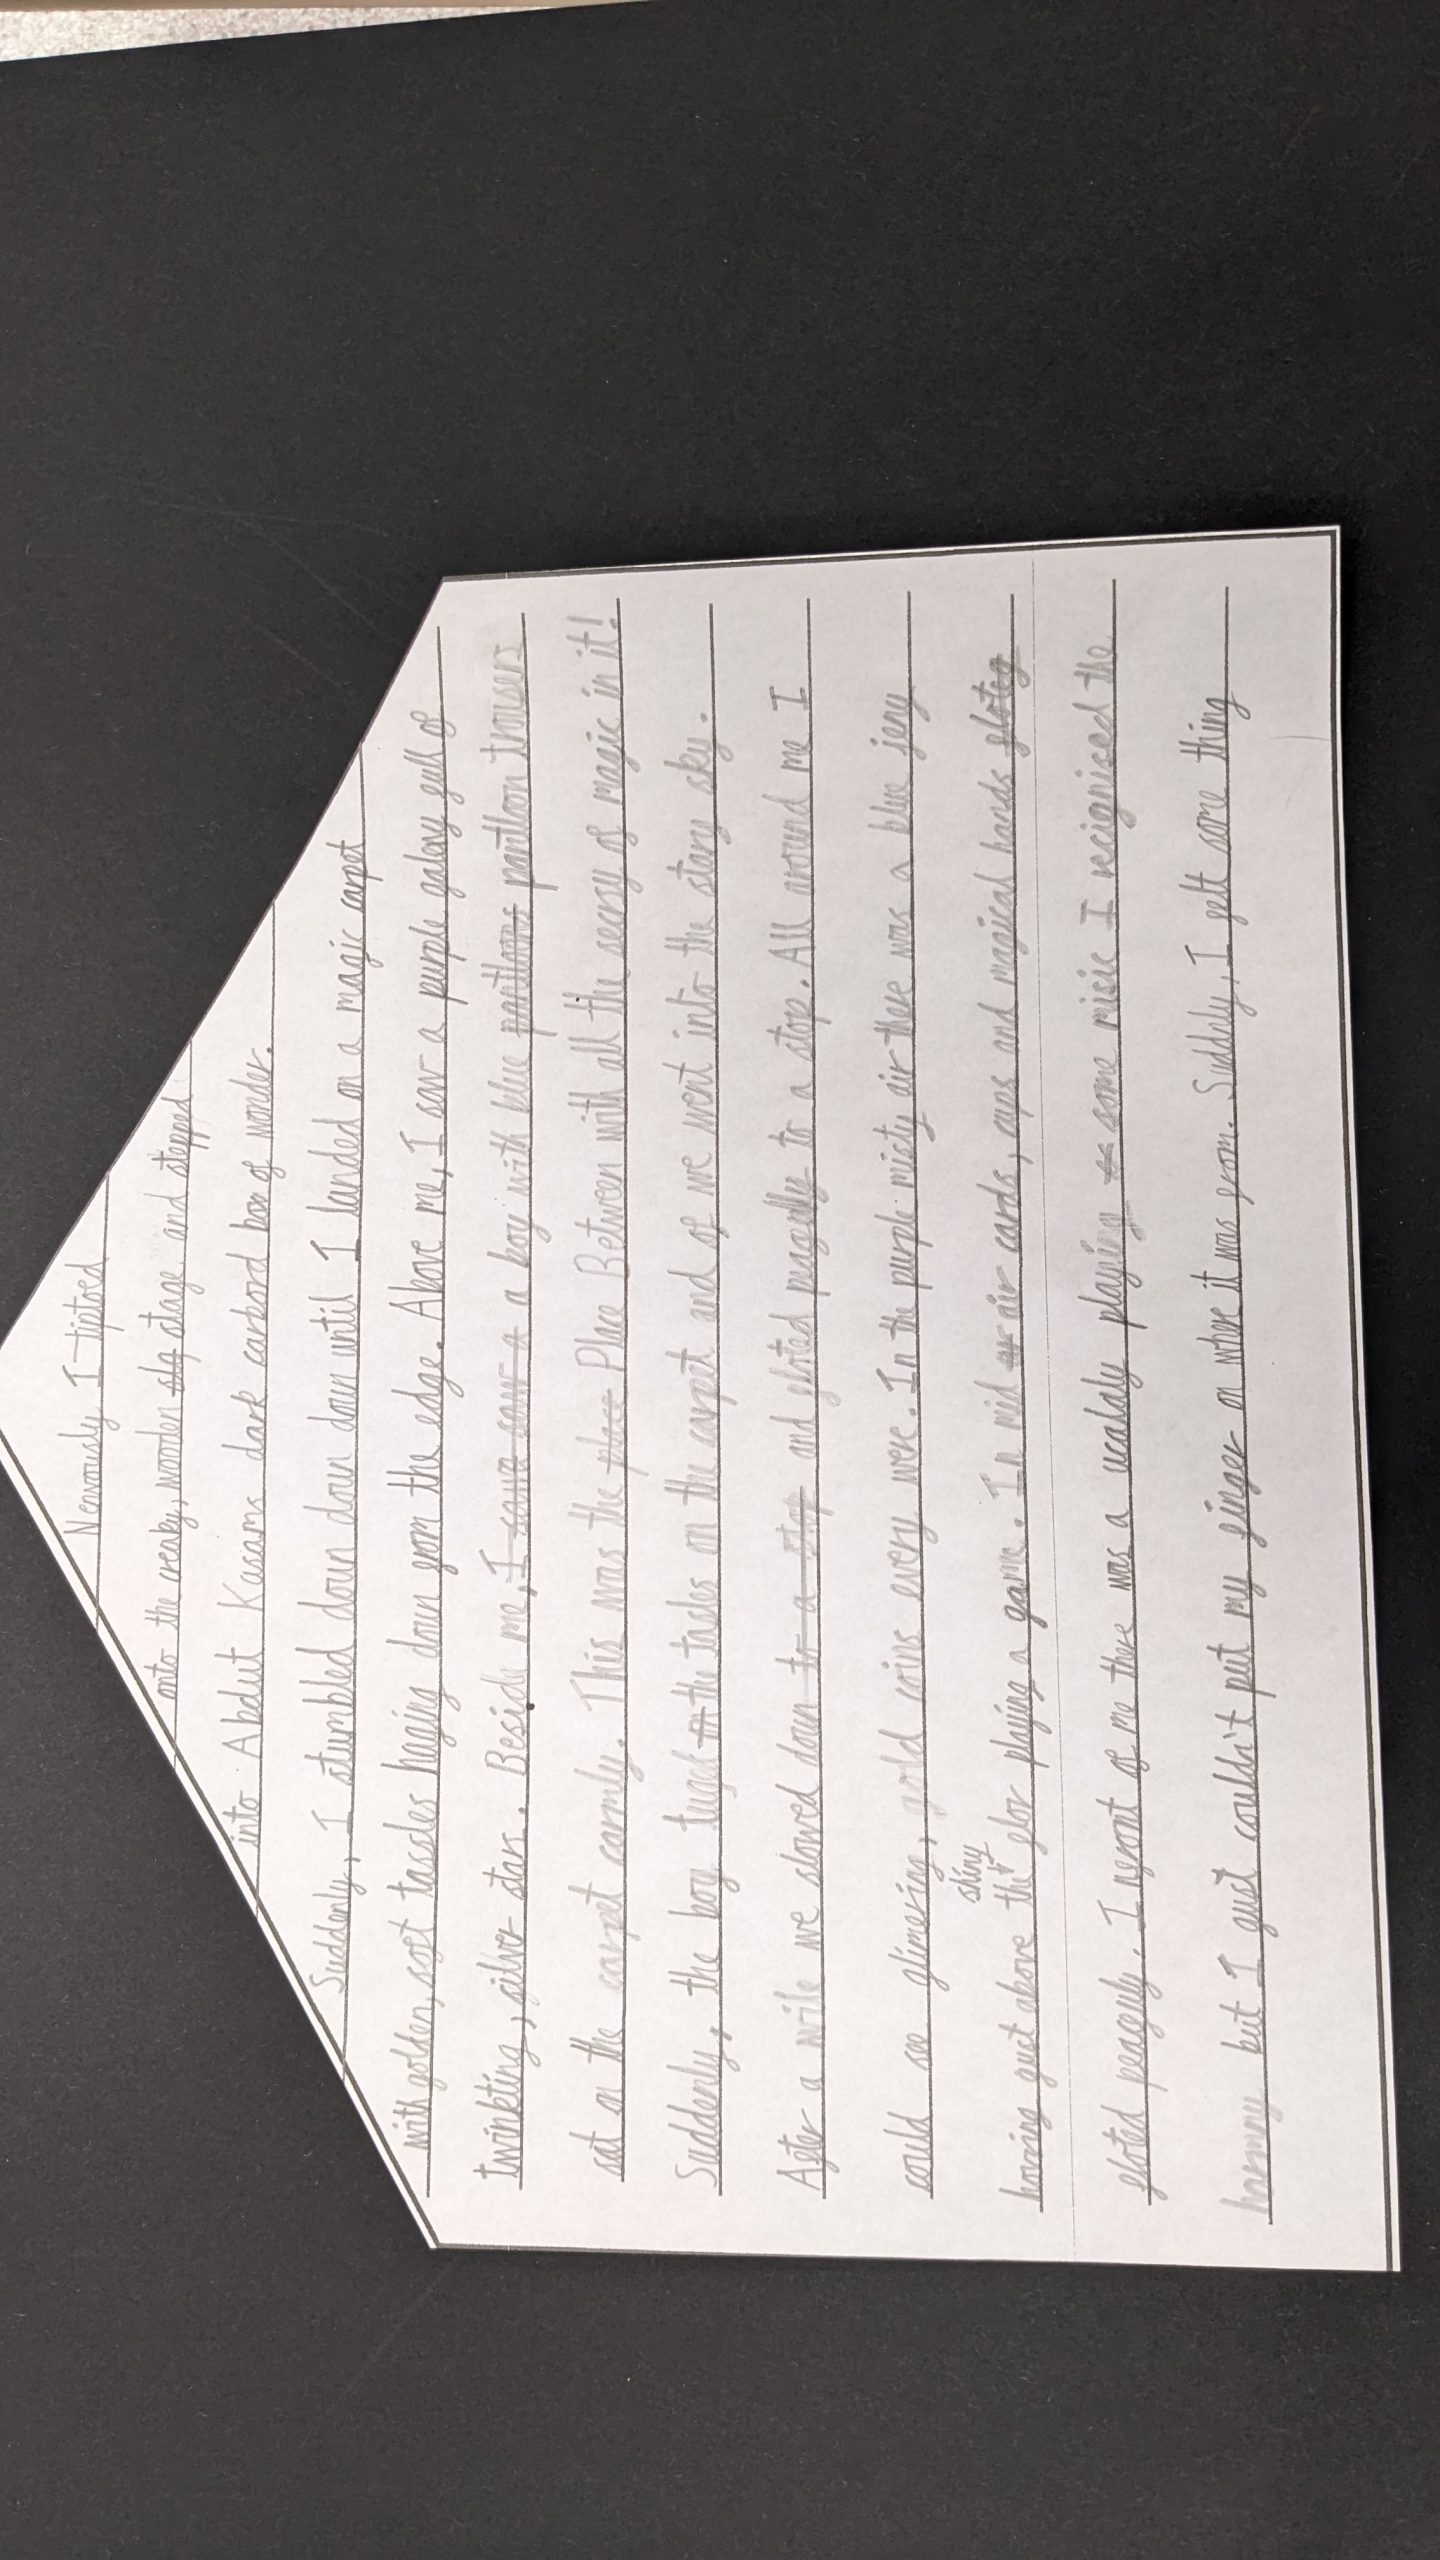 Nearvously I tiptoed
onto the creaky, wooden stag stage and stepped
into Abdut Kasams dark carbord box of wonder.
Suddenly, I stumbled down down down until I landed on a magic carpet
with golden, soft tassles haging down from the edge. Above me, I saw a purple galaxy full of
twinkling, silver stars. Beside me, I sawa saw a a boy with blue pantloons pantloon trousers
sat on the carpet carmly. This was the place Place Between with all the secrsy of magic in it!
Suddenly, the boy tuged the tasles on the carpet and of we went into the stary sky.
After a wile we slowed down to a stop and floted magically to a stop. All around me I
could see glimering, gold coins every were. In the purple misty air there was a blue jeny
hovring just above the shiny flor playing a game. In mid air cards, cups and magical hands floting
floted peacfuly. I nfront of me there was a ucalaly playing some misic I recignised the
harmny but I just couldn't put my finger on where it was from. Suddely, I felt some thing